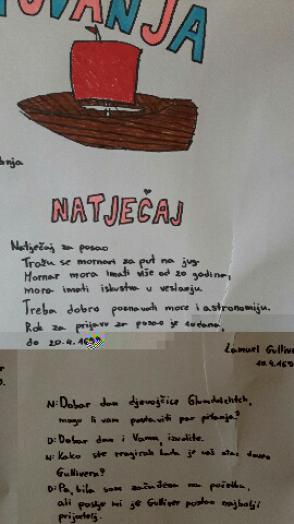 OVANJA
NATJEČAJ
Natječaj za posao
Traže se mornari za put na jug.
Mornar mora imati više od 20 godina,
mora imati iskustva u veslanju.
Treba dobro poznavati more i astronomiju.
Rok za prijavu za posao je
do 20.4.169
Lemuel Gulliver
10.4.169
N: Dobar dan djevojčice Glumdalclitch,
mogu li vam postaviti par pitanja?
D: Dobar dan i Vama, izvolite.
N: Kako ste reagirali kada je vaš otac doveo
Gullivera?
D: Pa, bila sam začuđena na početku,
ali poslije mi je Gulliver postao najbolji
prijatelj.